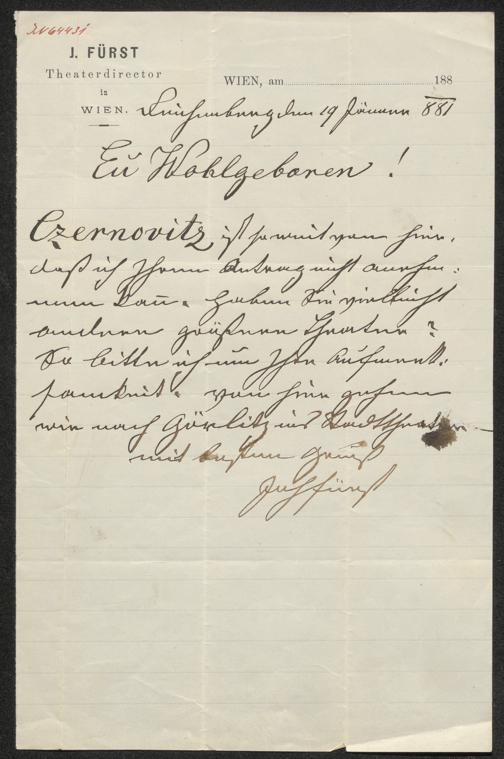 J. FÜRST
Theaterdirector
in
WIEN.
WIEN, am 188
Reichenberg den 19 Jänner 881
Eu Wohlgeboren !
Czernovitz ist so weit von hier,
daß ich Ihren Antrag nicht anehm:
men kan̄. Haben Sie vielleicht
andere größere Theater?
So bitte ich um Ihre Aufmerk:
samkeit. von hier gehen
wir nach Görlitz ins Stadttheater
mit bestem Gruß
Joh Fürst